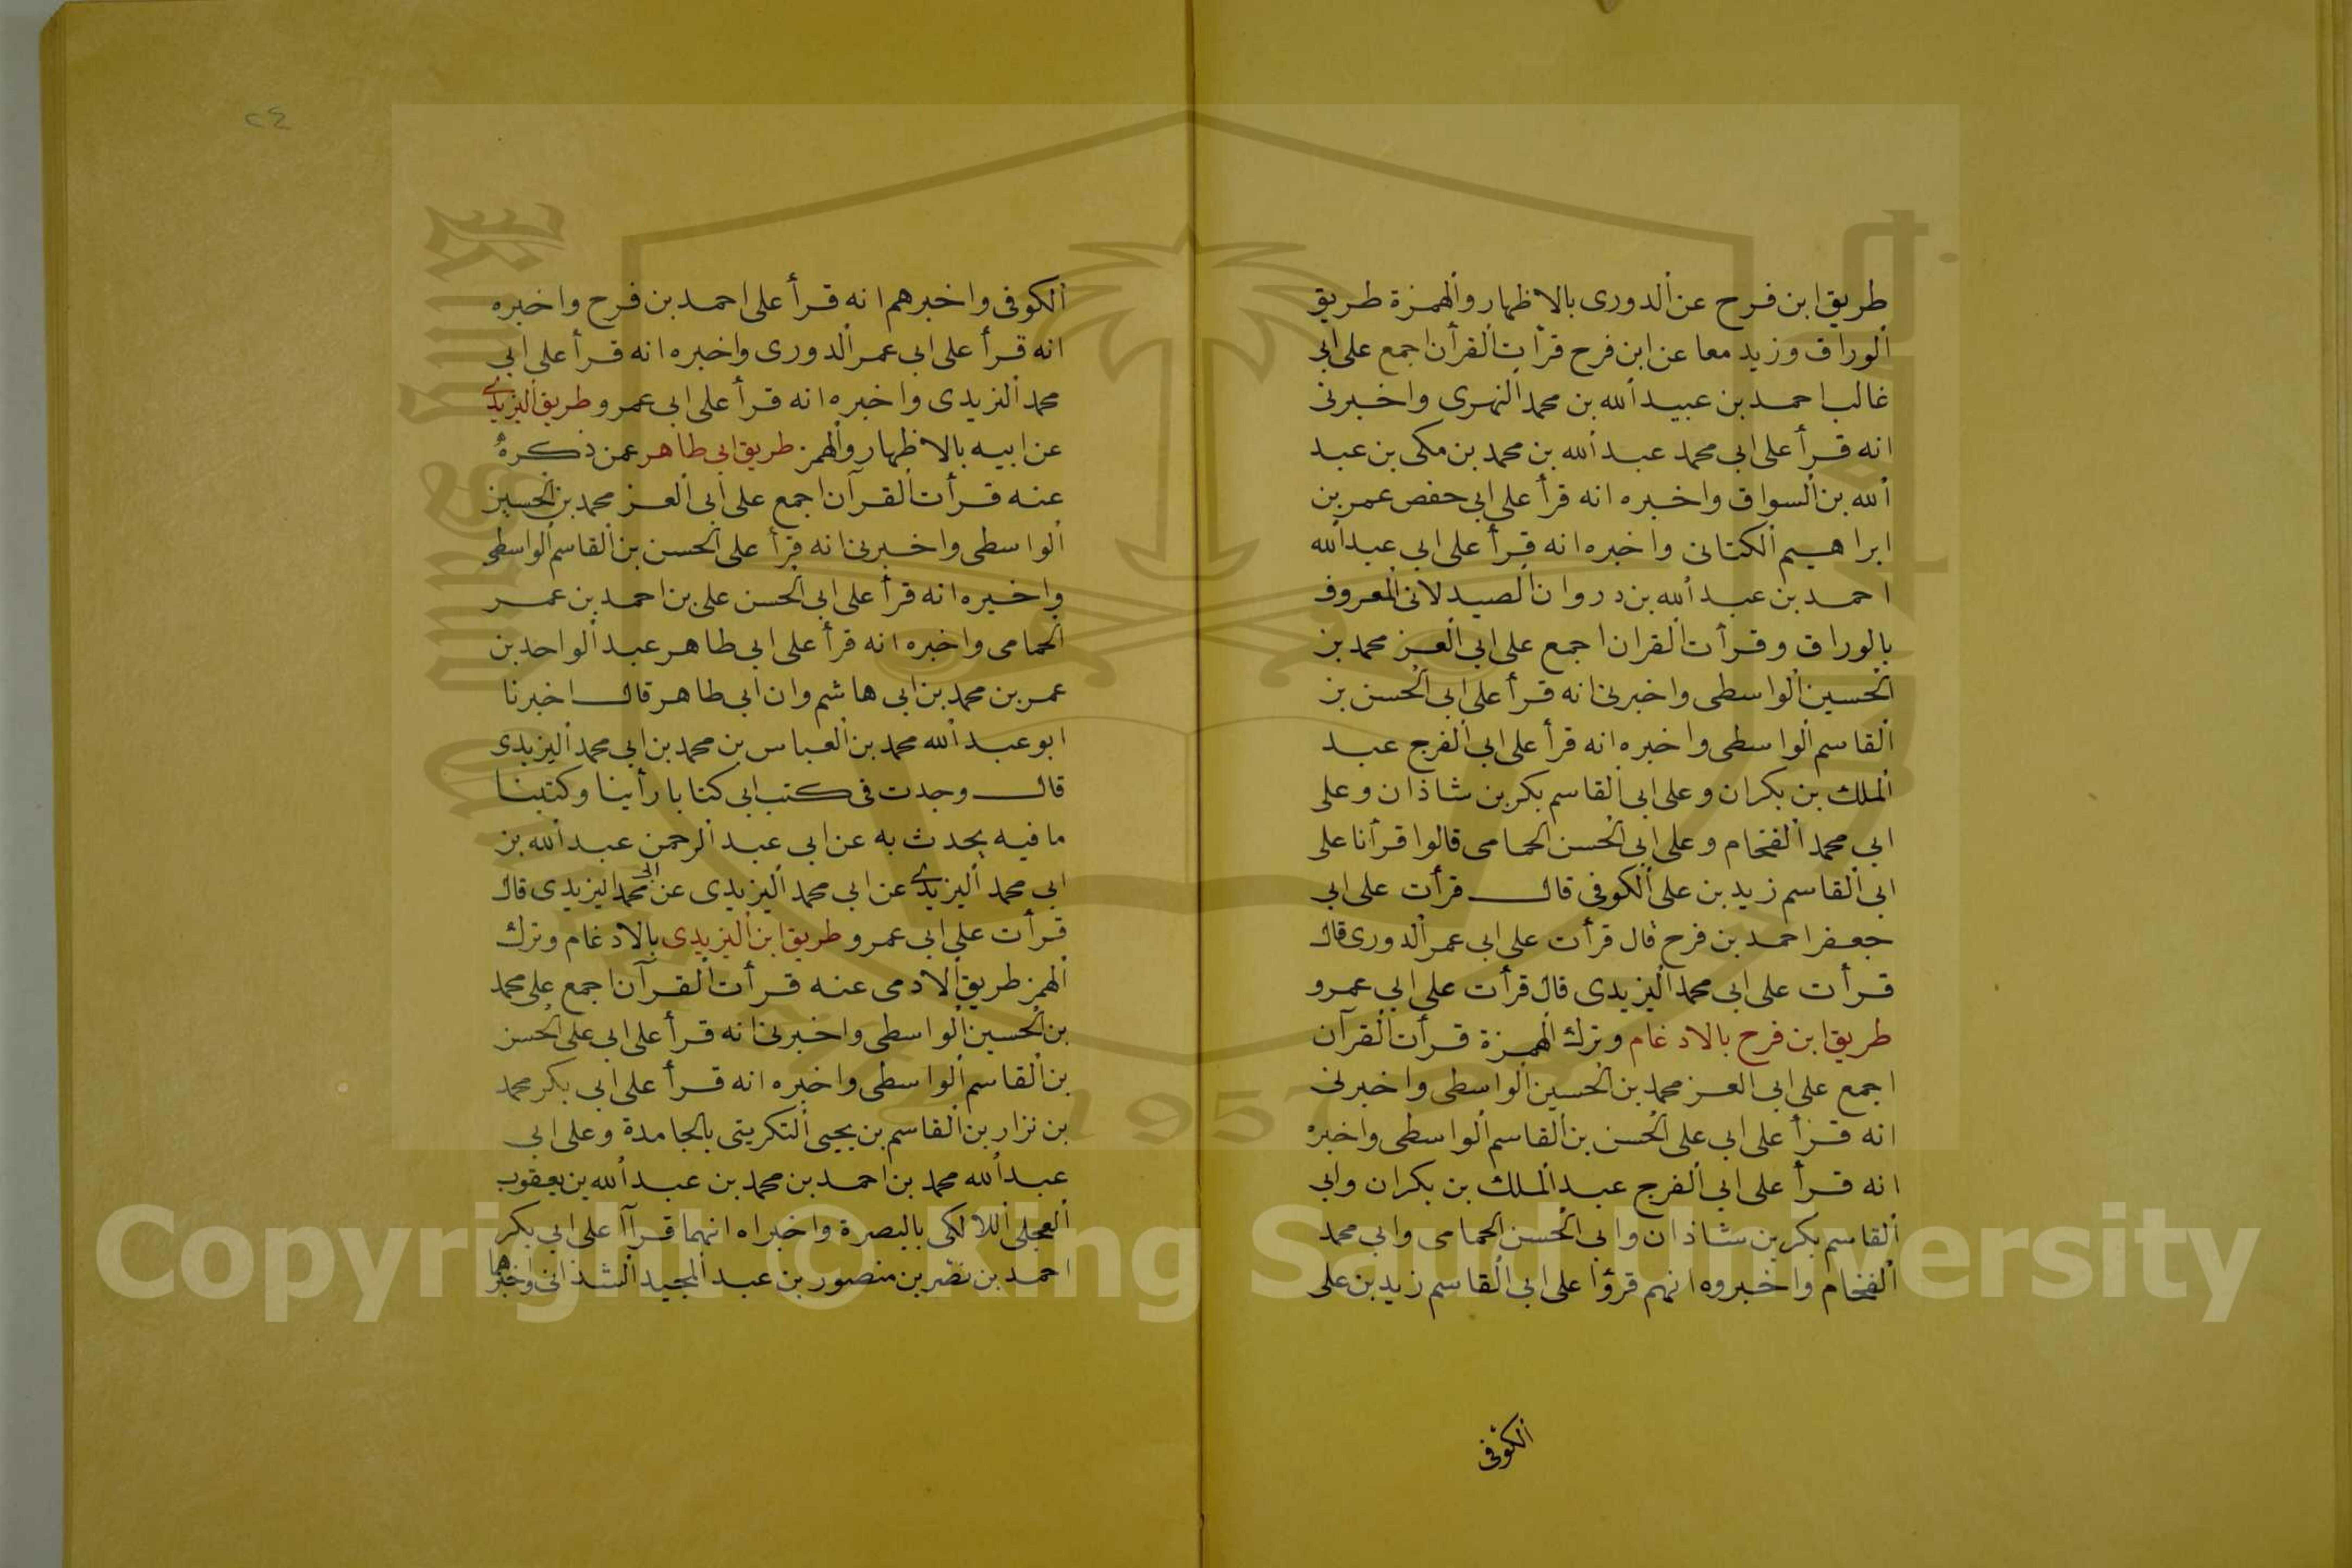 طريق ابن فرح عن الدورى بالاظهار والهمزة طريق
الوراق وزيد معا عن ابن فرح قرأت القرأن اجمع على ابى
غالب احمد بن عبيد الله بن محمد النهرى واخبرنى
انه قرأ على ابى محمد عبد الله بن محمد بن مكى بن عبد
الله بن السواق واخبره انه قرأ على ابى حفص عمر بن
ابراهيم الكتانى واخبره انه قرأ على ابي عبد الله
احمد بن عبد الله بن دروان الصيدلانى المعروف
بالوراق وقرأت القران اجمع على ابى العز محمد بن
الحسين الواسطى واخبرنى انه قرأ على ابى الحسن بن
القاسم الواسطى واخبره انه قرأ على ابى الفرج عبد
الملك بن بكران وعلى ابى القاسم بكر بن شاذان وعلى
ابي محمد الفخام وعلى ابى الحسن الحمامى قالوا قرأنا على
ابى القاسم زيد بن على الكوفى قال قرأت على ابى
جعفر احمد بن فرح قال قرأت على ابى عمر الدورى قال
قرأت على ابى محمد اليزيدى قال قرأت على ابي عمرو
طريق ابن فرح بالادغام وترك الهمزة قرأت القرآن
اجمع على ابى العز محمد بن الحسين الواسطى واخبرنى
انه قرأ على ابى على الحسن بن القاسم الواسطى واخبره
انه قرأ على ابى الفرج عبد الملك بن بكران وابى
القاسم بكر بن شاذان وابى الحسن الحمامى وابي محمد
الفخام واخبروه انهم قرؤا على ابى القاسم زيد بن على
الكوفى
٢٤
الكوفى واخبرهم انه قرأ على احمد بن فرح واخبره
انه قرأ على ابى عمر الدورى واخبره انه قرأ على ابي
محمد اليزيدى واخبره انه قرأ على ابى عمرو طريق اليزيدى
عن ابيه بالاظهار والهمز طريق ابى طاهر عمن ذكره
عنه قرأت القرآن اجمع على ابى العز محمد بن الحسين
الواسطى واخبرنى انه قرأ على الحسن بن القاسم الواسطى
واخبره انه قرأ على ابى الحسن على بن احمد بن عمر
الحمامى واخبره انه قرأ على ابى طاهر عبد الواحد بن
عمر بن محمد بن ابى هاشم وان ابى طاهر قال اخبرنا
ابو عبد الله محمد بن العباس بن محمد بن ابي محمد اليزيدى
قال وجدت فى كتب ابى كتابا رأينا وكتبنا
ما فيه يحدث به عن ابى عبد الرحمن عبد الله بن
ابي محمد اليزيدى عن ابى محمد اليزيدى عن ابى محمد اليزيدى قال
قرأت على ابى عمرو طريق ابن اليزيدى بالادغام وترك
الهمز طريق الادمى عنه قرأت القرآن اجمع على محمد
بن الحسين الواسطى واخبرنى انه قرأ على ابى على الحسن
بن القاسم الواسطى واخبره انه قرأ على ابى بكر محمد
بن نزار بن القاسم بن يحيى التكريتى بالجامدة وعلى ابى
عبد الله محمد بن احمد بن محمد بن عبد الله بن يعقوب
العجلى اللالكى بالبصرة واخبراه انهما قرآا على ابى بكر
احمد بن نصر بن منصور بن عبد المجيد الشذانى واخبرهما
1957
Copyright © King Saud University